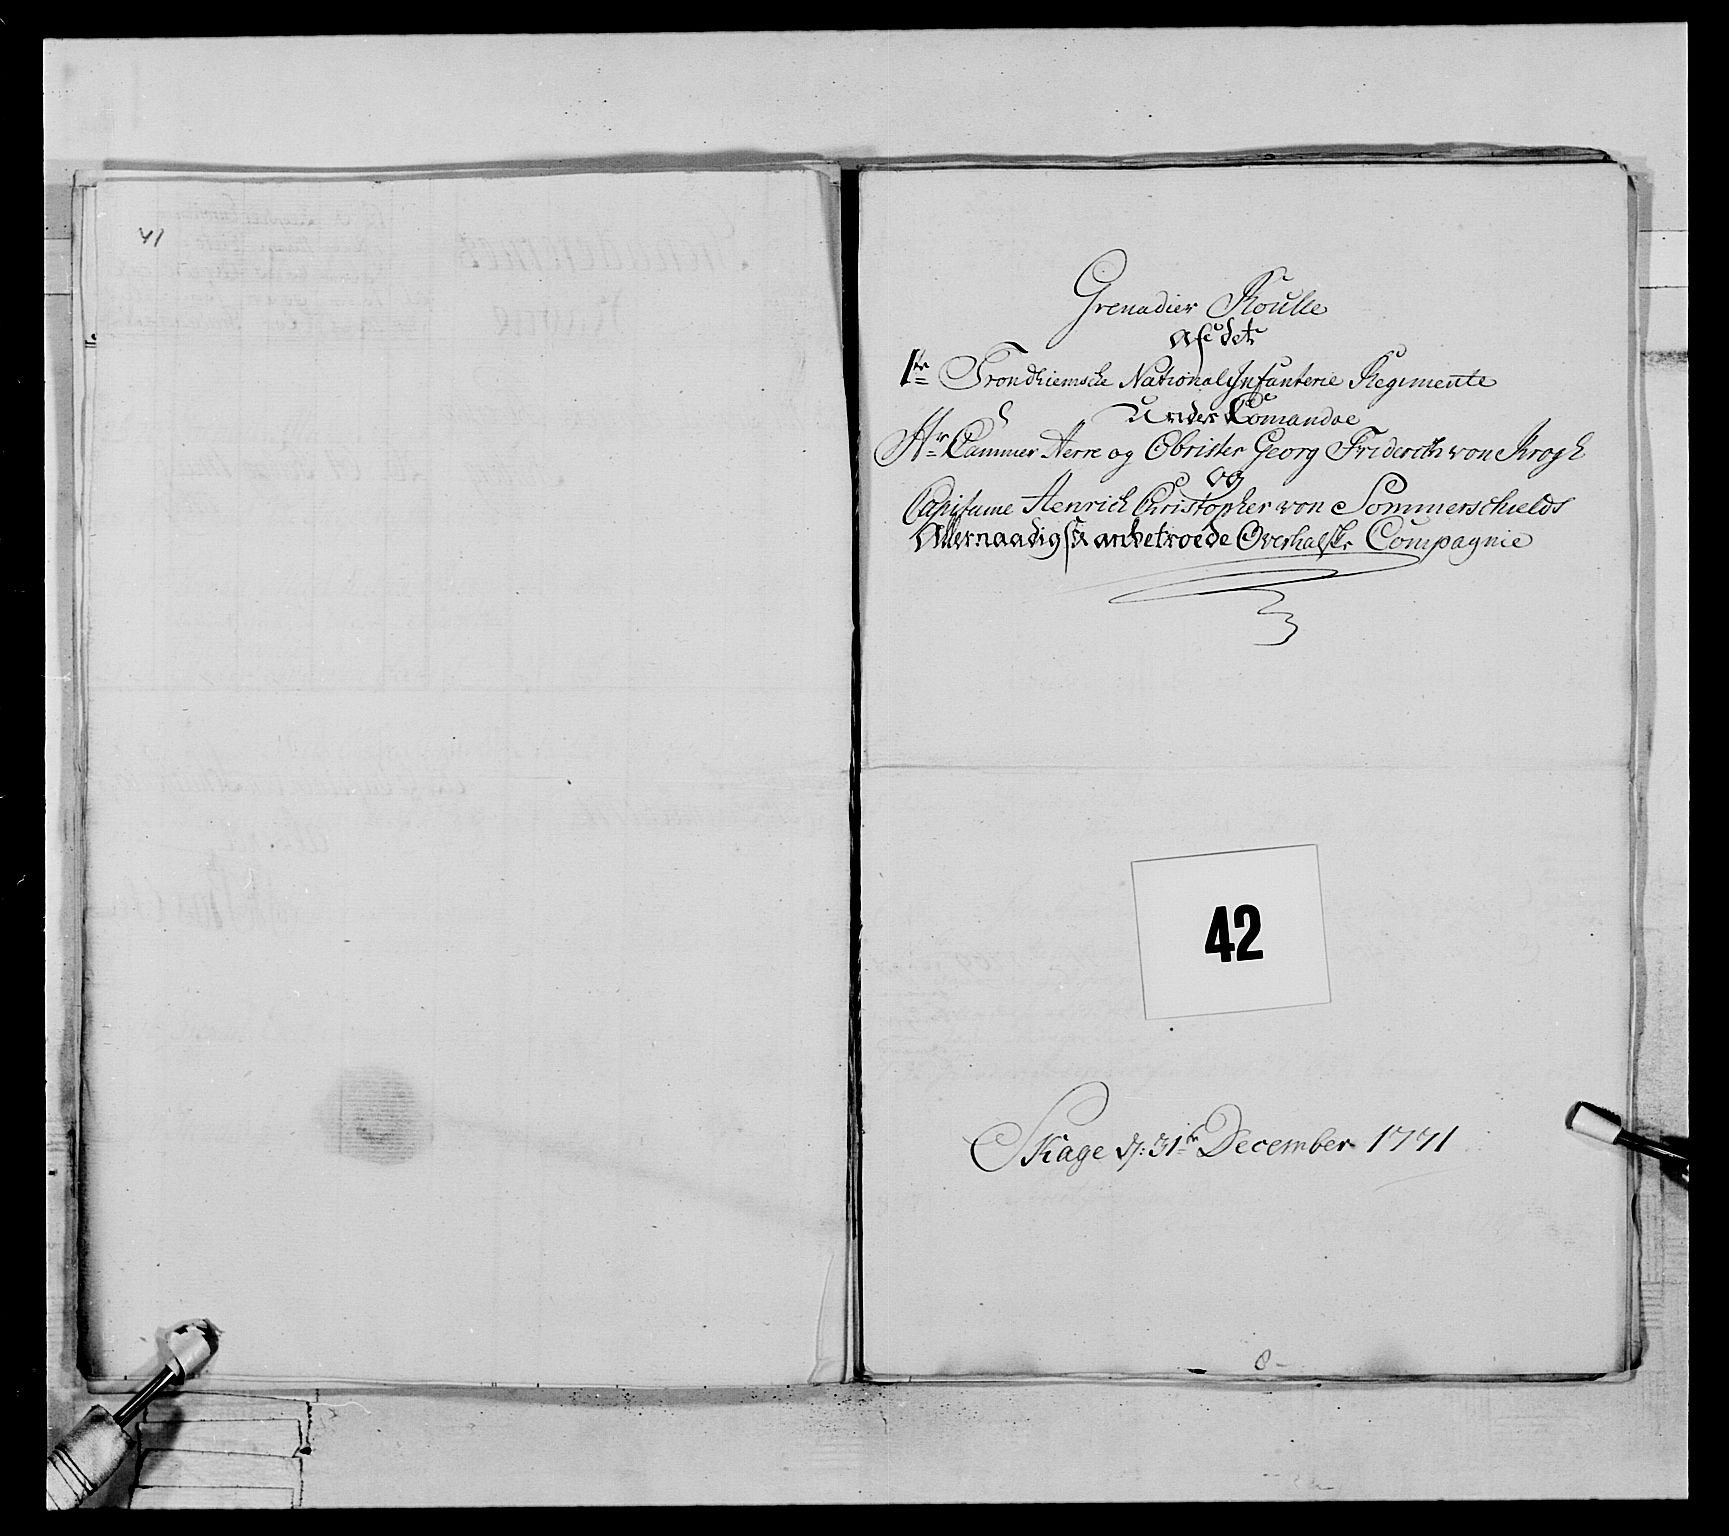 41
Grenadier Roulle
af det
1te Trondhiemske National Infanterie Regimente
Under Comandoe
Hr Cammer Herre og Obrister Georg Friderich von Krogh
og
Capitaine Henrich Christopher von Sommerschields
Allernaadigst anbetroede Overhalske Compagnie
42
Skage d: 31te December 1771